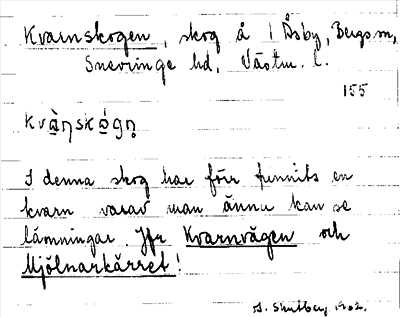 Kvarnskogen, skog å 1 Åsby, Bergs sn,
Snevringe hd, Västm. l.
155
kvàηskógn̥
I denna skog har förr funnits en
kvarn varav man ännu kan se
lämningar. Jfr Kvarnvägen och
Mjölnarkärret!
1902.